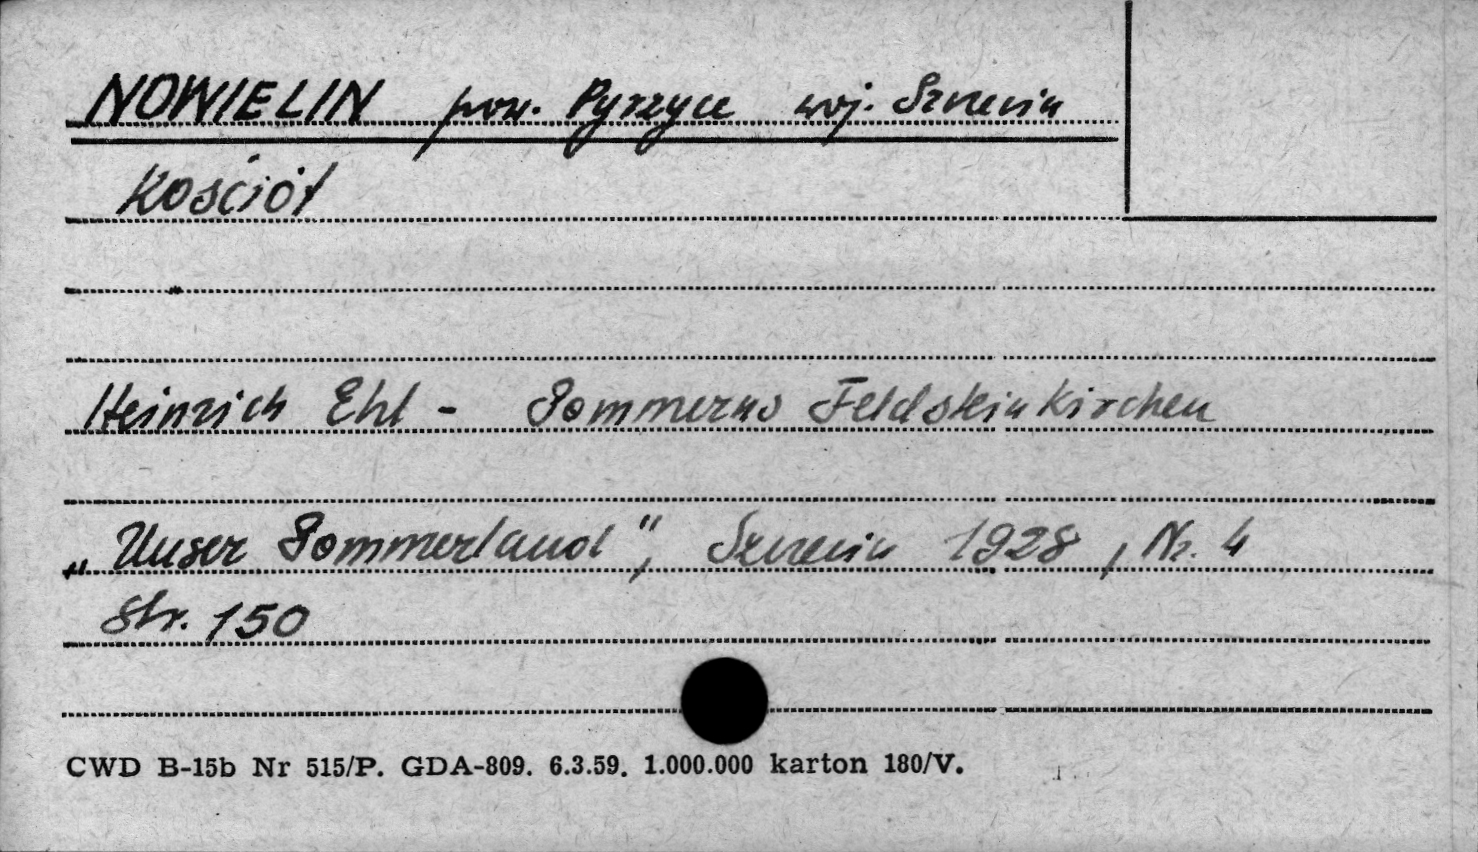 NOWIELIN pow. Pyrzyce woj. Szczecin
Kościół
Heinrich Ehl - Pommerns Feldsteinkirchen
„Unser Pommerland", Szczecin 1928, Nr. 4
Str. 150
CWD B-15b Nr 515/P. GDA-809. 6.3.59. 1.000.000 karton 180/V.